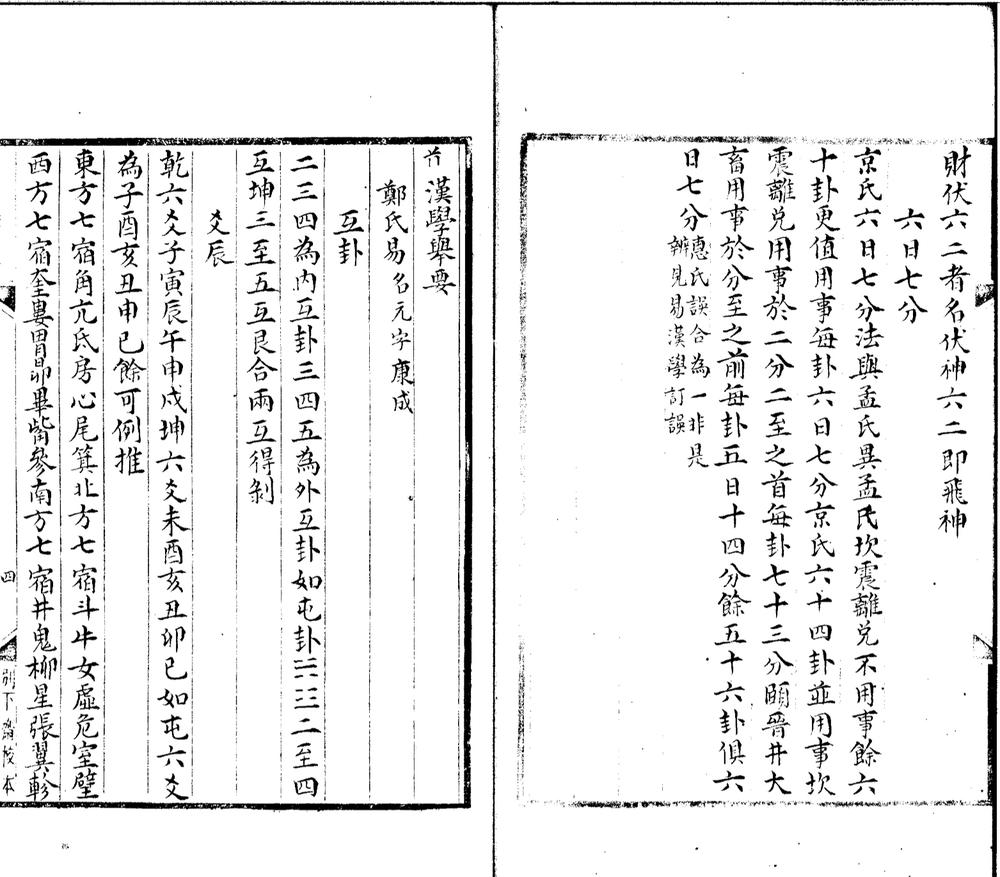 財伏六二者名伏神六二即飛神
六日七分
京氏六日七分法與孟氏異孟氏坎震離兌不用事餘六
十卦更值用事每卦六日七分京氏六十四卦並用事坎
震離兌用事於二分二至之首每卦七十三分頤晉井大
畜用事於分至之前每卦五日十四分餘五十六卦俱六
日七分惠氏誤合為一非是
辨見易漢學訂誤
漢學舉要
鄭氏易名元字康成
互卦
二三四為內互卦三四五為外互卦如屯卦☵☳二至四
互坤三至五互艮合兩互得剝
爻辰
乾六爻子寅辰午申戌坤六爻未酉亥丑卯巳如屯六爻
為子酉亥丑申巳餘可例推
東方七宿角亢氐房心尾箕北方七宿斗牛女虛危室壁
西方七宿奎婁胃昴畢觜參南方七宿井鬼柳星張翼軫
四
別下齋校本